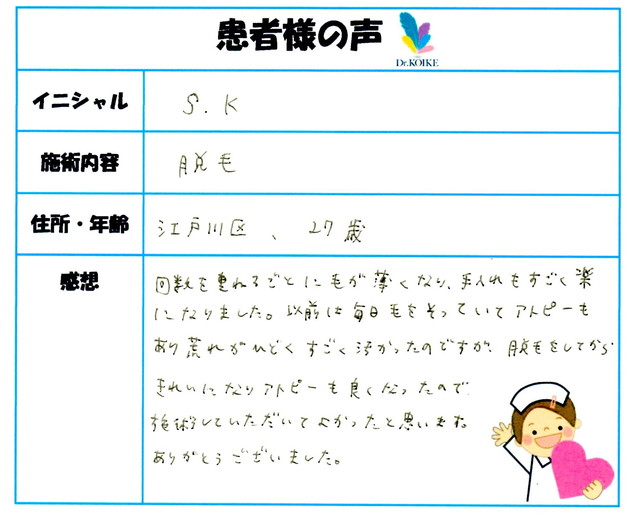 患者様の声
Dr.KOIKE
イニシャル
S.K
施術内容
脱毛
住所・年齢
江戸川区、27歳
感想
回数を重ねるごとに毛が薄くなり、手入れもすごく楽
になりました。以前は毎日毛をそっていてアトピーも
あり荒れがひどくすごく汚かったのですが、脱毛をしてから
きれいになりアトピーも良くなったので
施術していただいてよかったと思いまた
ありがとうございました。